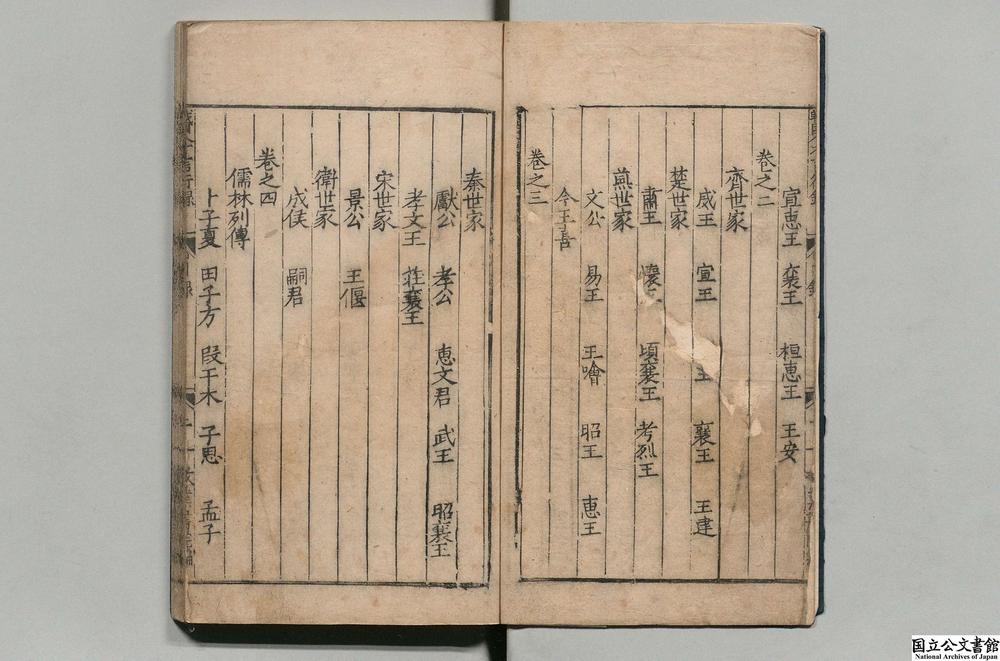 宣恵王 襄王 桓恵王 王安
卷之二
齊世家
威王 宣王 王 襄王 王建
楚世家
肅王 懷王 頃襄王 考烈王
燕世家
文公 易王 王噲 昭王 恵王
今王喜
卷之三
秦世家
獻公 孝公 恵文君 武王 昭襄王
孝文王 莊襄王
宋世家
景公 王偃
衛世家
成侯 嗣君
卷之四
儒林列傳
卜子夏 田子方 段干木 子思 孟子
国立公文書館
National Archives of Japan